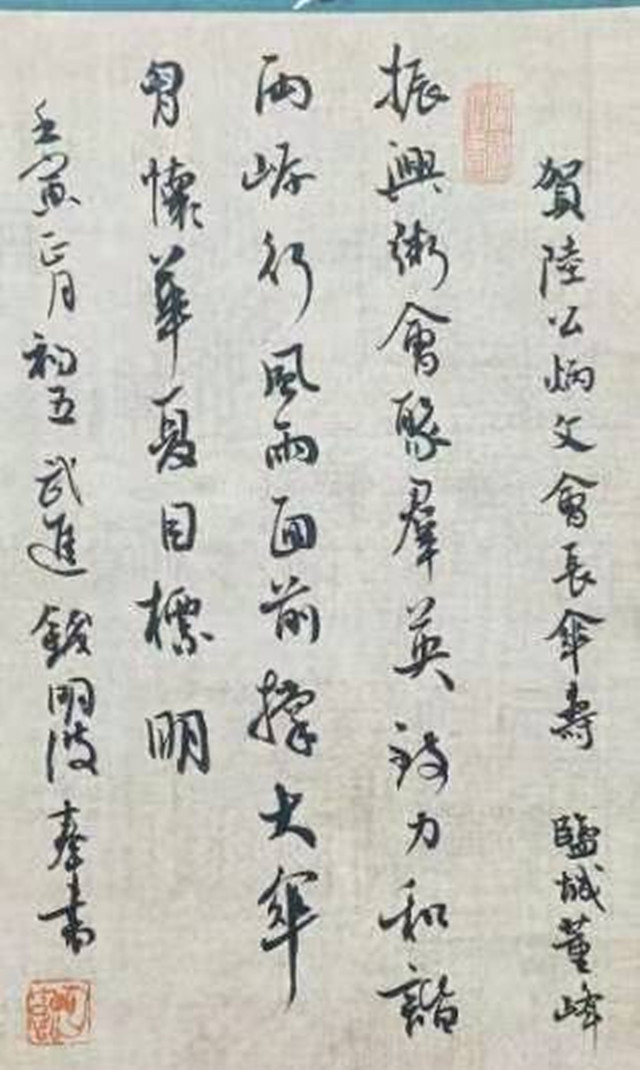 賀陸公炳文會長傘壽 鹽城董峰
振興衡會聚羣英致力和諧
兩岸行風雨面前撐大傘
胷懷華夏目標明
壬寅正月初五武進錢明波奉書